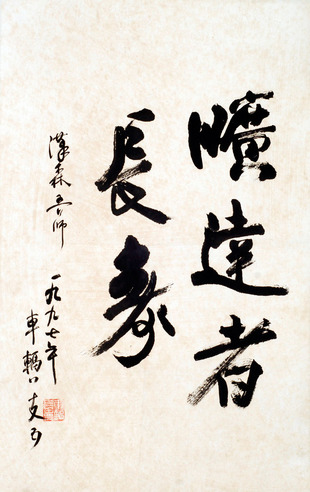 曠達者
長壽
漢森吾師
一九九七年
車